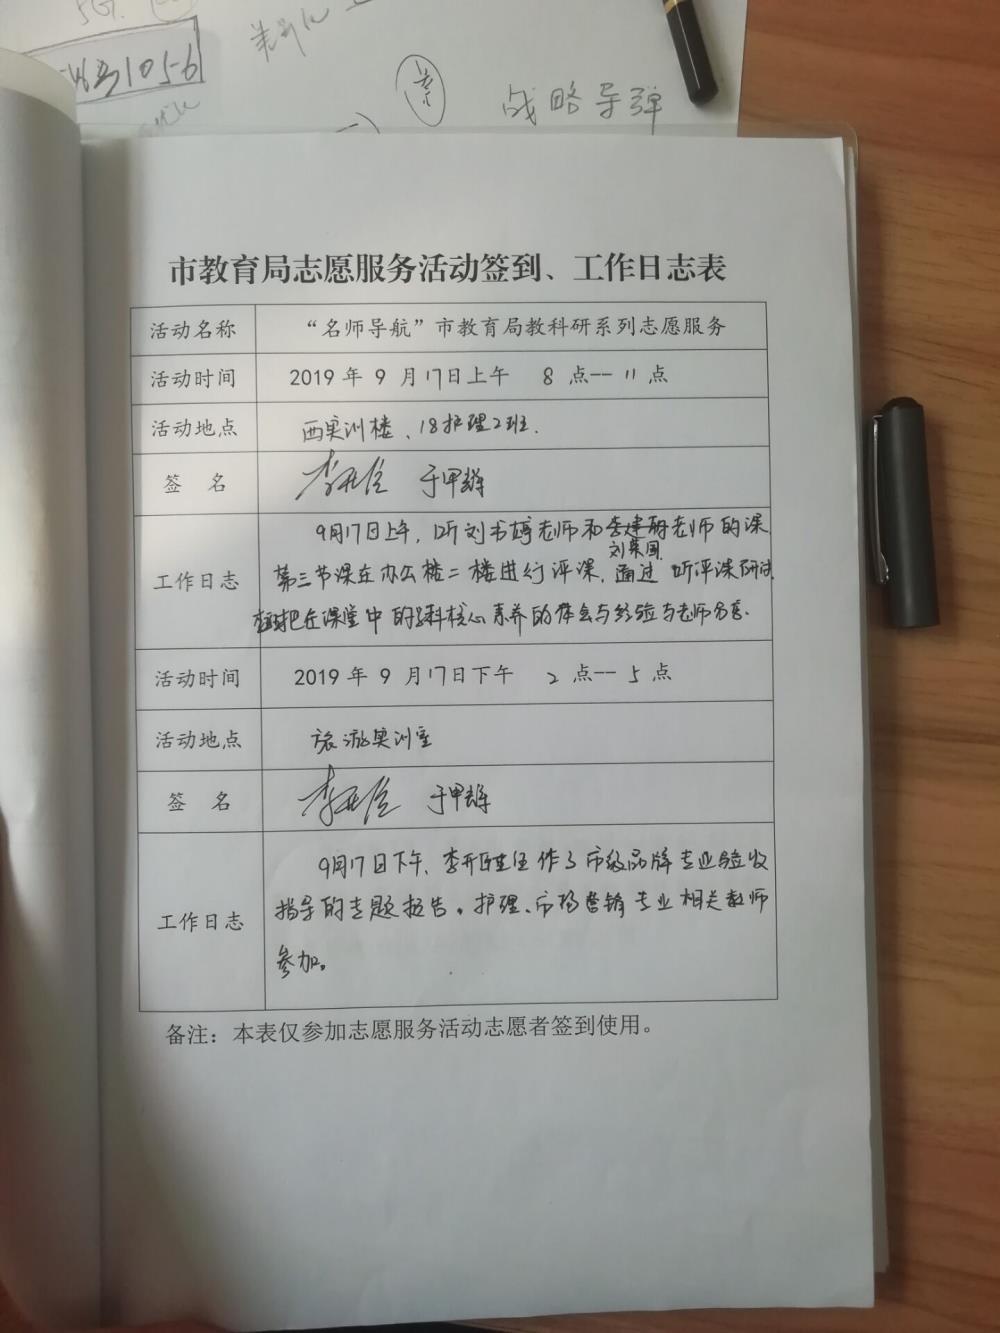 战略导弹
市教育局志愿服务活动签到、工作日志表
活动名称 “名师导航”市教育局教科研系列志愿服务
活动时间 2019 年 9 月 17日上午 8 点-- 11 点
活动地点 西实训楼、18护理2班.
签 名 于甲辉
9月17日上午,听刘书婷老师和老师的课,
刘荣国
工作日志 第三节课在办公楼二楼进行评课,通过听评课研讨
把在课堂中的学科核心素养的体会与经验与老师分享.
活动时间 2019 年 9 月17日下午 2 点-- 5 点
活动地点 旅游实训室
签 名 于甲辉
9月17日下午,李开主任作了市级品牌专业验收
工作日志 指导的专题报告。护理、市场营销专业相关教师
参加。
备注：本表仅参加志愿服务活动志愿者签到使用。